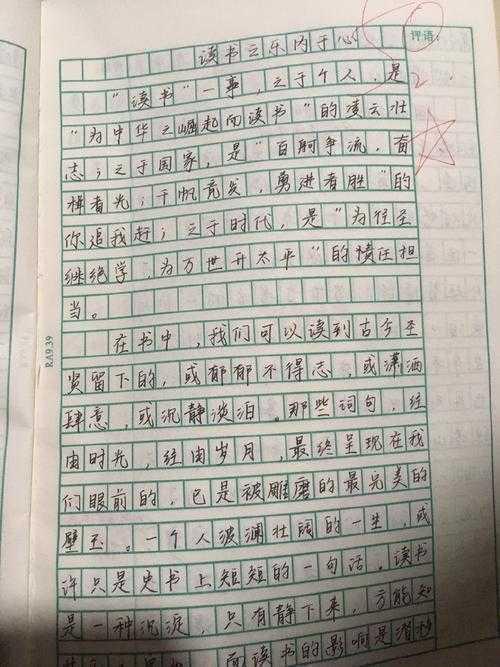 评语:
读书之乐内于心
“读书”一事，之于个人，是
“为中华之崛起而读书”的凌云壮
志；之于国家，是“百舸争流，奋
楫者先；千帆竞发，勇进者胜”的
你追我赶；之于时代，是“为往圣
继绝学，为万世开太平”的责任担
当。
在书中，我们可以读到古今圣
贤留下的，或郁郁不得志，或潇洒
肆意，或沉静淡泊。那些词句，经
由时光，经由岁月，最终呈现在我
们眼前的，已是被雕磨的最完美的
璧玉。一个人波澜壮阔的一生，或
许只是史书上短短的一句话。读书
是一种沉淀，只有静下来，方能知
而读书的影响是潜移
RA9.39